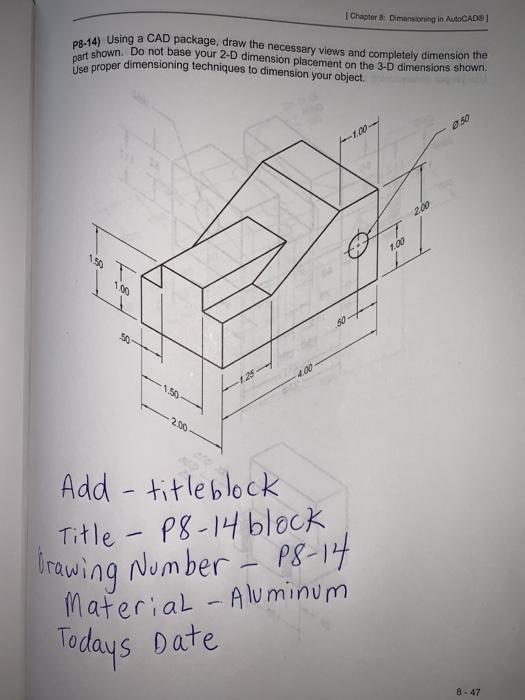 [ Chapter 8: Dimensioning in AutoCAD® ]
P8-14) Using a CAD package, draw the necessary views and completely dimension the
part shown. Do not base your 2-D dimension placement on the 3-D dimensions shown.
Use proper dimensioning techniques to dimension your object.
1.00
Ø.50
2.00
1.00
1.50
1.00
.50
.50
1.25
4.00
1.50
2.00
Add - titleblock
Title - P8-14 block
Drawing Number - P8-14
Material - Aluminum
Todays Date
8 - 47